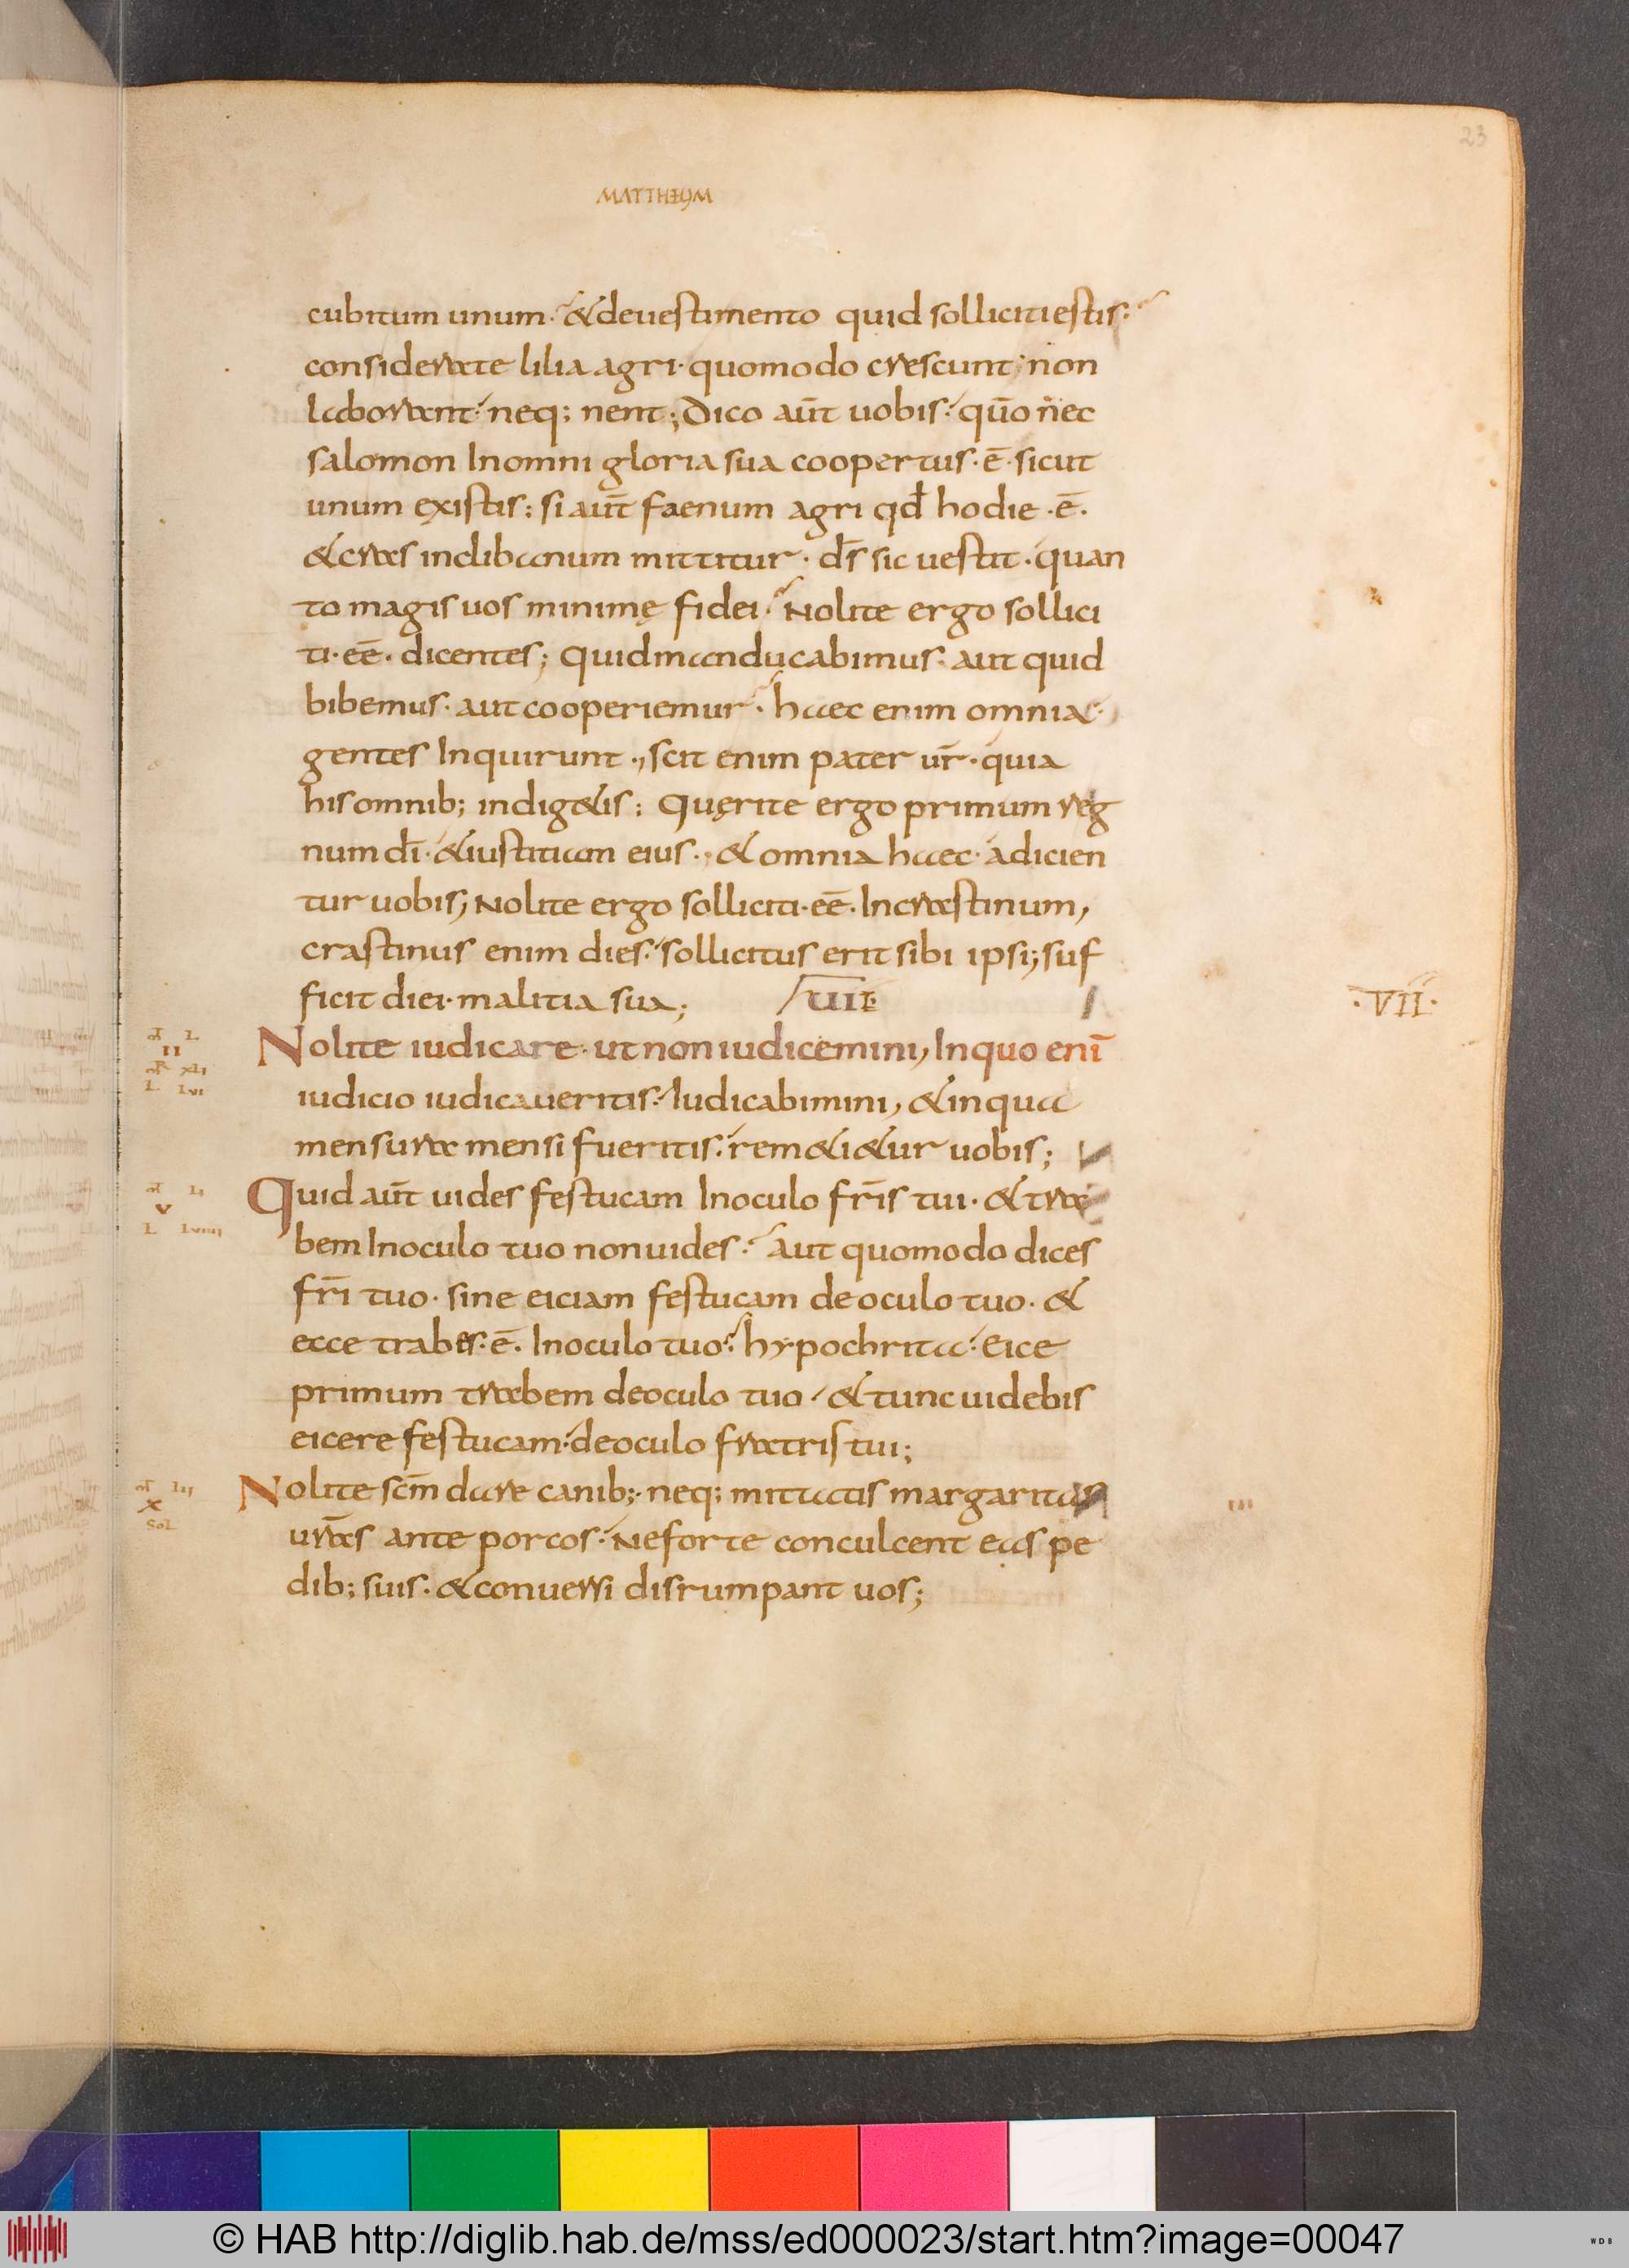 23
MATTHEUM
cubitum unum· &deuestimento quid sollicitiestis:
considerate lilia agri· quomodo crescunt; non
laborant: neq; nent; Dico aūt uobis: quō nec
salomon Inomni gloria sua coopertus· ē· sicut
unum existis: si aūt faenum agri qd̄ hodie ·ē·
&cras inclibanum mittitur· ds̄ sic uestit· quan
to magis uos minimę fidei· Nolite ergo sollici
ti· eē· dicentes; Quidmanducabimus· aut quid
bibemus· aut cooperiemur· haec enim omnia·
gentes Inquirunt·, scit enim pater ur̄· quia
hisomnib; indig&is: Quęrite ergo primum reg
num dī· &iustitiam eius·, & omnia haec· adicien
tur uobis; Nolite ergo solliciti· eē· Incrastinum,
crastinus enim dies: sollicitus erit sibi ipsi; suf
ficit diei· malitia sua; UII· ·VII·
Nolite iudicare· ut non iudicemini, Inquo enī
iudicio iudicaueritis: Iudicabimini, &inqua
mensura mensi fueritis: rem&i&ur uobis;
Quid aūt uides festucam Inoculo frīs tui· & tra
bem Inoculo tuo nonuides: Aut quomodo dices
frī tuo· sine eiciam festucam de oculo tuo· &
ecce trabes· ē· Inoculo tuo: hypochrita: Eice
primum trabem deoculo tuo· & tunc uidebis
eicere festucam· deoculo fratris tui;
Nolite scm̄ dare canib;· neq; mittatis margaritas
urās ante porcos· Neforte conculcent eas pe
dib; suis· & conuersi disrumpant uos;
© HAB http://diglib.hab.de/mss/ed000023/start.htm?image=00047